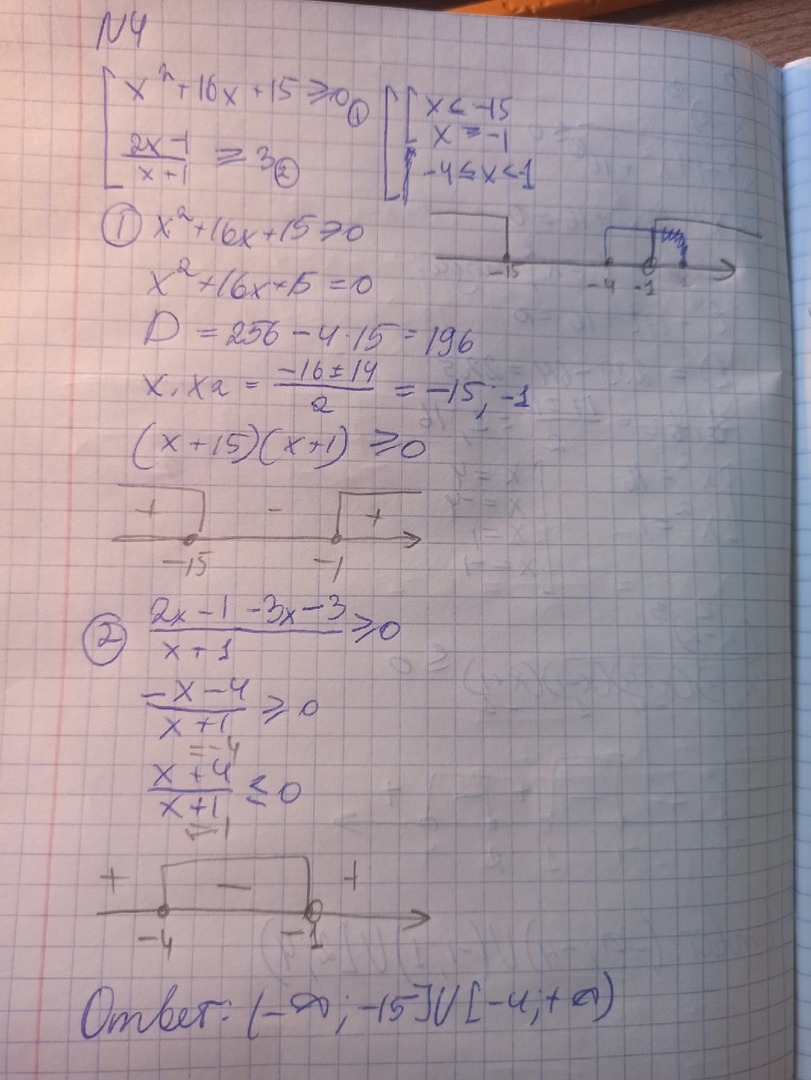 N4
[ x² + 16x + 15 ≥ 0 ①
2x - 1 / x + 1 ≥ 3 ②
[ [ x ≤ -15
x ≥ -1
-4 ≤ x < -1
① x² + 16x + 15 ≥ 0
x² + 16x + 15 = 0
D = 256 - 4·15 = 196
x₁ x₂ = -16 ± 14 / 2 = -15; -1
(x + 15)(x + 1) ≥ 0
-15 -4 -1
+ - +
-15 -1
② 2x - 1 - 3x - 3 / x + 1 ≥ 0
-x - 4 / x + 1 ≥ 0
= -4
x + 4 / x + 1 ≤ 0
= -1
+ - +
-4 -1
Ответ: (-∞; -15] U [-4; +∞)